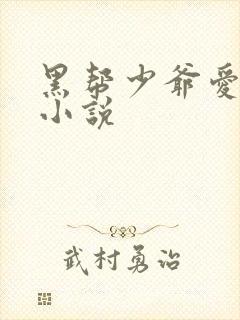 黑帮少爷爱
小說
武村勇治